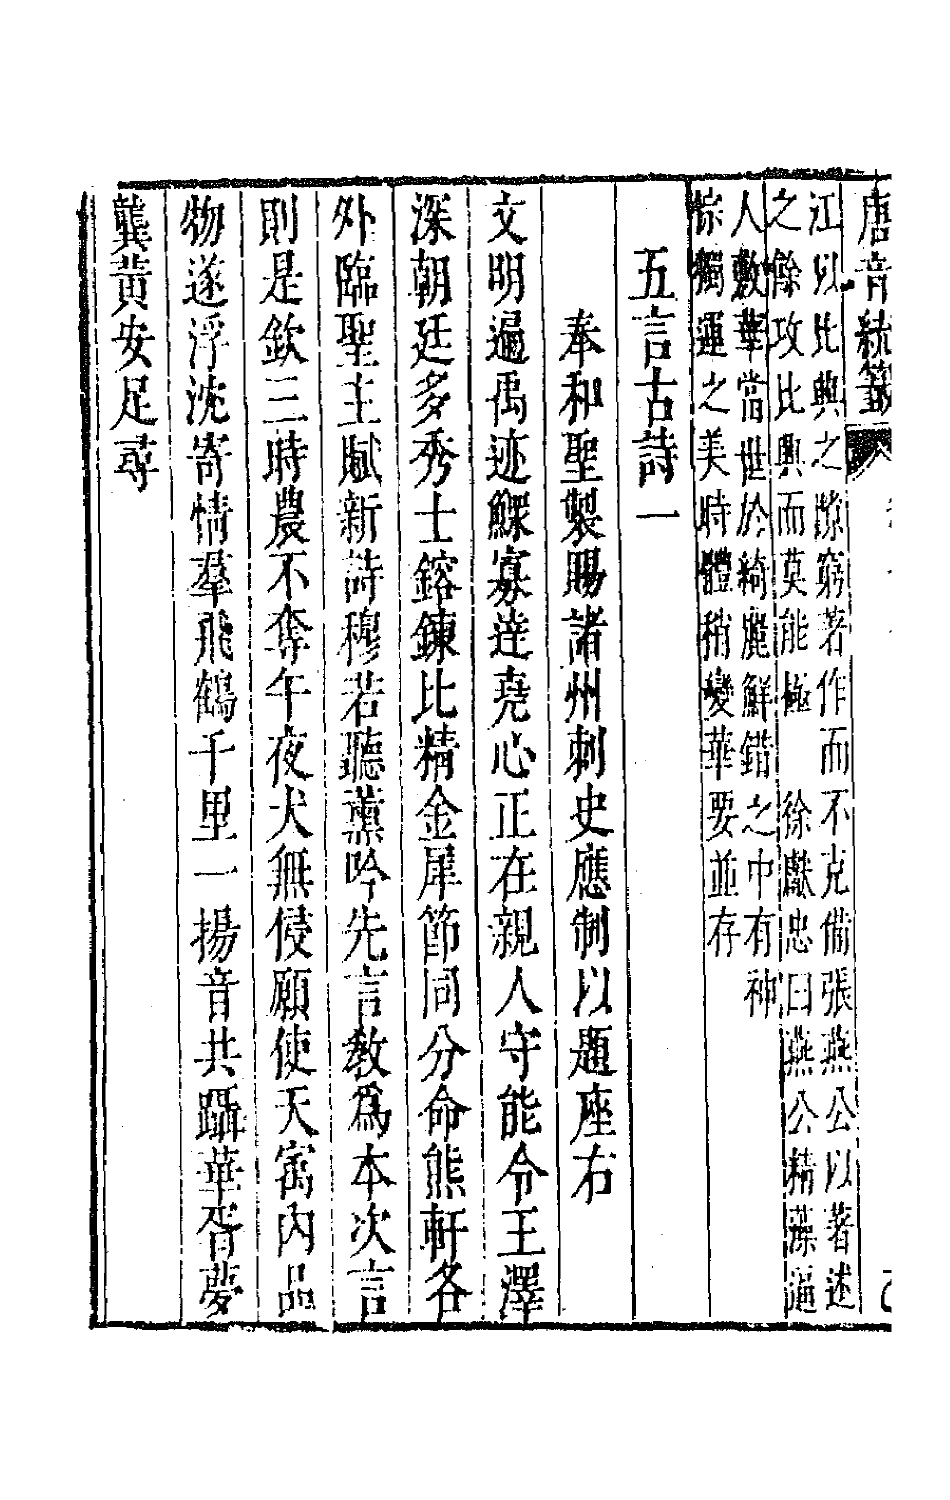 唐音統籤
江以比興之隙窮著作而不克備張燕公以著述
之餘攻比興而莫能極　徐獻忠曰燕公精藻逼
人敷華當世於綺麗鮮錯之中有神
悰獨運之美時體稍變華要並存
五言古詩一
奉和聖製賜諸州刺史應制以題座右
文明遍禹迹鰥寡達堯心正在親人守能令王澤
深朝廷多秀士鎔鍊比精金犀節同分命熊軒各
外臨聖主賦新詩穆若聽薰吟先言教爲本次言
則是欽三時農不奪午夜犬無侵願使天㝢內品
物遂浮沈寄情羣飛鶴千里一揚音共躡華胥夢
龔黃安足尋